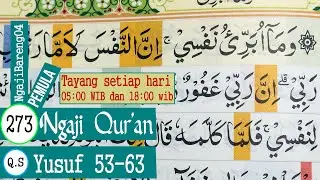 وَمَآ اُبَرِّئُ نَفْسِيْ ۚ اِنَّ النَّفْسَ لَاَمَّارَةٌ
رَبِّيْ ۗ اِنَّ رَبِّيْ غَفُوْرٌ
لِنَفْسِيْ ۚ فَلَمَّا كَلَّمَهٗ قَالَ
NgajiBareng04
PEMULA
Tayang setiap hari
05:00 WIB dan 18:00 wib
273 Ngaji Qur'an
Q.S Yusuf 53-63